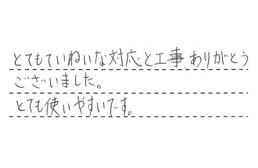 とてもていねいな対応と工事、ありがとう
ございました。
とても使いやすいです。